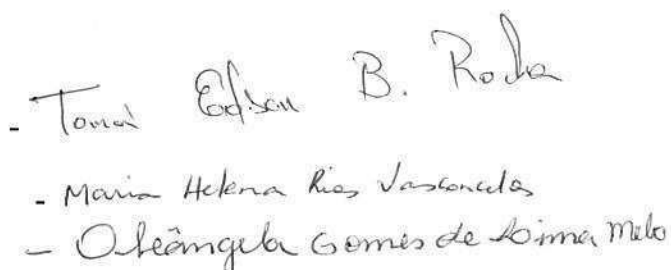 - Tomaz Edson B. Rocha
- Maria Helena Rios Vasconcelos
- Oleângela Gomes de Lima Melo